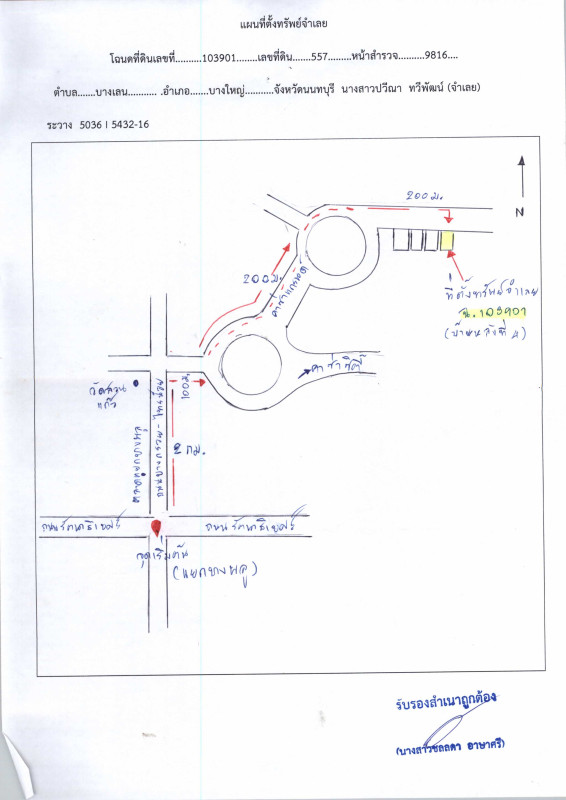 แผนที่ตั้งทรัพย์จำเลย
โฉนดที่ดินเลขที่..........103901........เลขที่ดิน.......557.........หน้าสำรวจ..........9816....
ตำบล.......บางเลน........... .อำเภอ.......บางใหญ่...........จังหวัดนนทบุรี นางสาวปวีณา ทวีพัฒน์ (จำเลย)
ระวาง 5036 I 5432-16
200 ม.
N
200 ม.
คาซ่าแกรนด์
ที่ตั้งทรัพย์จำเลย
ฉ.103901
(บ้านหลังที่ 4)
คาซ่าซิตี้
วัดสวน
แก้ว
100 ม.
ถนนบางกรวย-ไทรน้อย
2 กม.
ถนนรัตนาธิเบศร์
ถนนรัตนาธิเบศร์
จุดเริ่มต้น
(แยกบางพลู)
รับรองสำเนาถูกต้อง
(นางสาวชลลดา อาษาศรี)